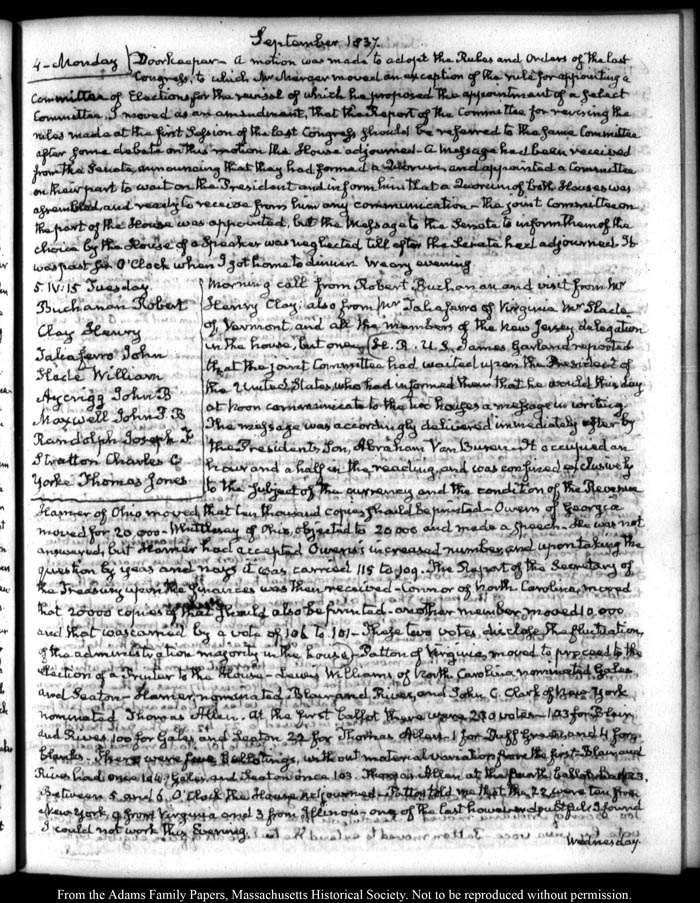 September 1837.
4 - Monday
Doorkeeper - A motion was made to adopt the Rules and Orders of the last
Congress; to which Mr Mercer moved an exception of the rule for appointing a
Committee of Elections for the revisal of which he proposed the appointment of a Select
Committee. I moved as an amendment, that the Report of the Committee for revising the
rules made at the first Session of the last Congress should be referred to the same Committee
after some debate on this motion the House adjourned - A Message had been received
from the Senate, announcing that they had formed a Quorum, and appointed a Committee
on their part to wait on the President and inform him that a Quorum of both Houses was
assembled, and ready to receive from him any communication - the joint Committee on
the part of the House was appointed, but the Message to the Senate to inform them of the
choice by the House of a Speaker was neglected till after the Senate had adjourned. It
was past six O'Clock when I got home to dinner. Weary evening.
5. IV:15 Tuesday.
Buchanan Robert
Clay Henry
Taliaferro John
Slade William
Aycrigg John B
Maxwell John P B
Randolph Joseph F
Stratton Charles C
Yorke Thomas Jones
Morning call from Robert Buchanan and visit from Mr
Henry Clay; also from Mr Taliaferro of Virginia Mr Slade
of Vermont and all the members of the New Jersey delegation
in the house, but one. H. R. U. S. James Garland reported
that the joint Committee had waited upon the President of
the United States, who had informed them that he would this day
at noon communicate to the two houses a message in writing.
The message was accordingly delivered immediately after by
the President's Son, Abraham Van Buren. It occupied an
hour and a half in the reading, and was confined exclusively
to the subject of the currency and the condition of the Revenue
Hamer of Ohio moved that ten thousand copies should be printed - Owens of Georgia
moved for 20 000 - Whittlesey of Ohio, objected to 20 000 and made a speech. He was not
answered, but Hamer had accepted Owens's increased number, and upon taking the
question by yeas and nays it was carried 115 to 109. The Report of the Secretary of
the Treasury upon the finances was then received - Connor of North Carolina, moved
that 20000 copies of that should also be printed - another member moved 10,000
and that was carried by a vote of 106 to 101 - These two votes, disclose the fluctuation
of the administration majority in the house - Patton of Virginia, moved to proceed to the
election of a Printer to the House - Lewis Williams of North Carolina nominated Gales
and Seaton - Hamer, nominated Blair and Rives, and John C. Clark of New York
nominated Thomas Allen. At the first ballot there were 230 votes - 103 for Blair
and Rives, 100 for Gales and Seaton 22 for Thomas Allen. 1 for Duff Green and 4
blanks. There were five Ballotings, without material variation from the first - Blair and
Rives had once 104; Gales and Seaton once 103. Thomas Allen at the fourth ballot had 23.
Between 5 and 6 O'Clock the House adjourned - Patton told me that the 22 were ten from
New York, 9 from Virginia and 3 from Illinois - one of the last
I could not work this Evening.
Wednesday
From the Adams Family Papers, Massachusetts Historical Society. Not to be reproduced without permission.